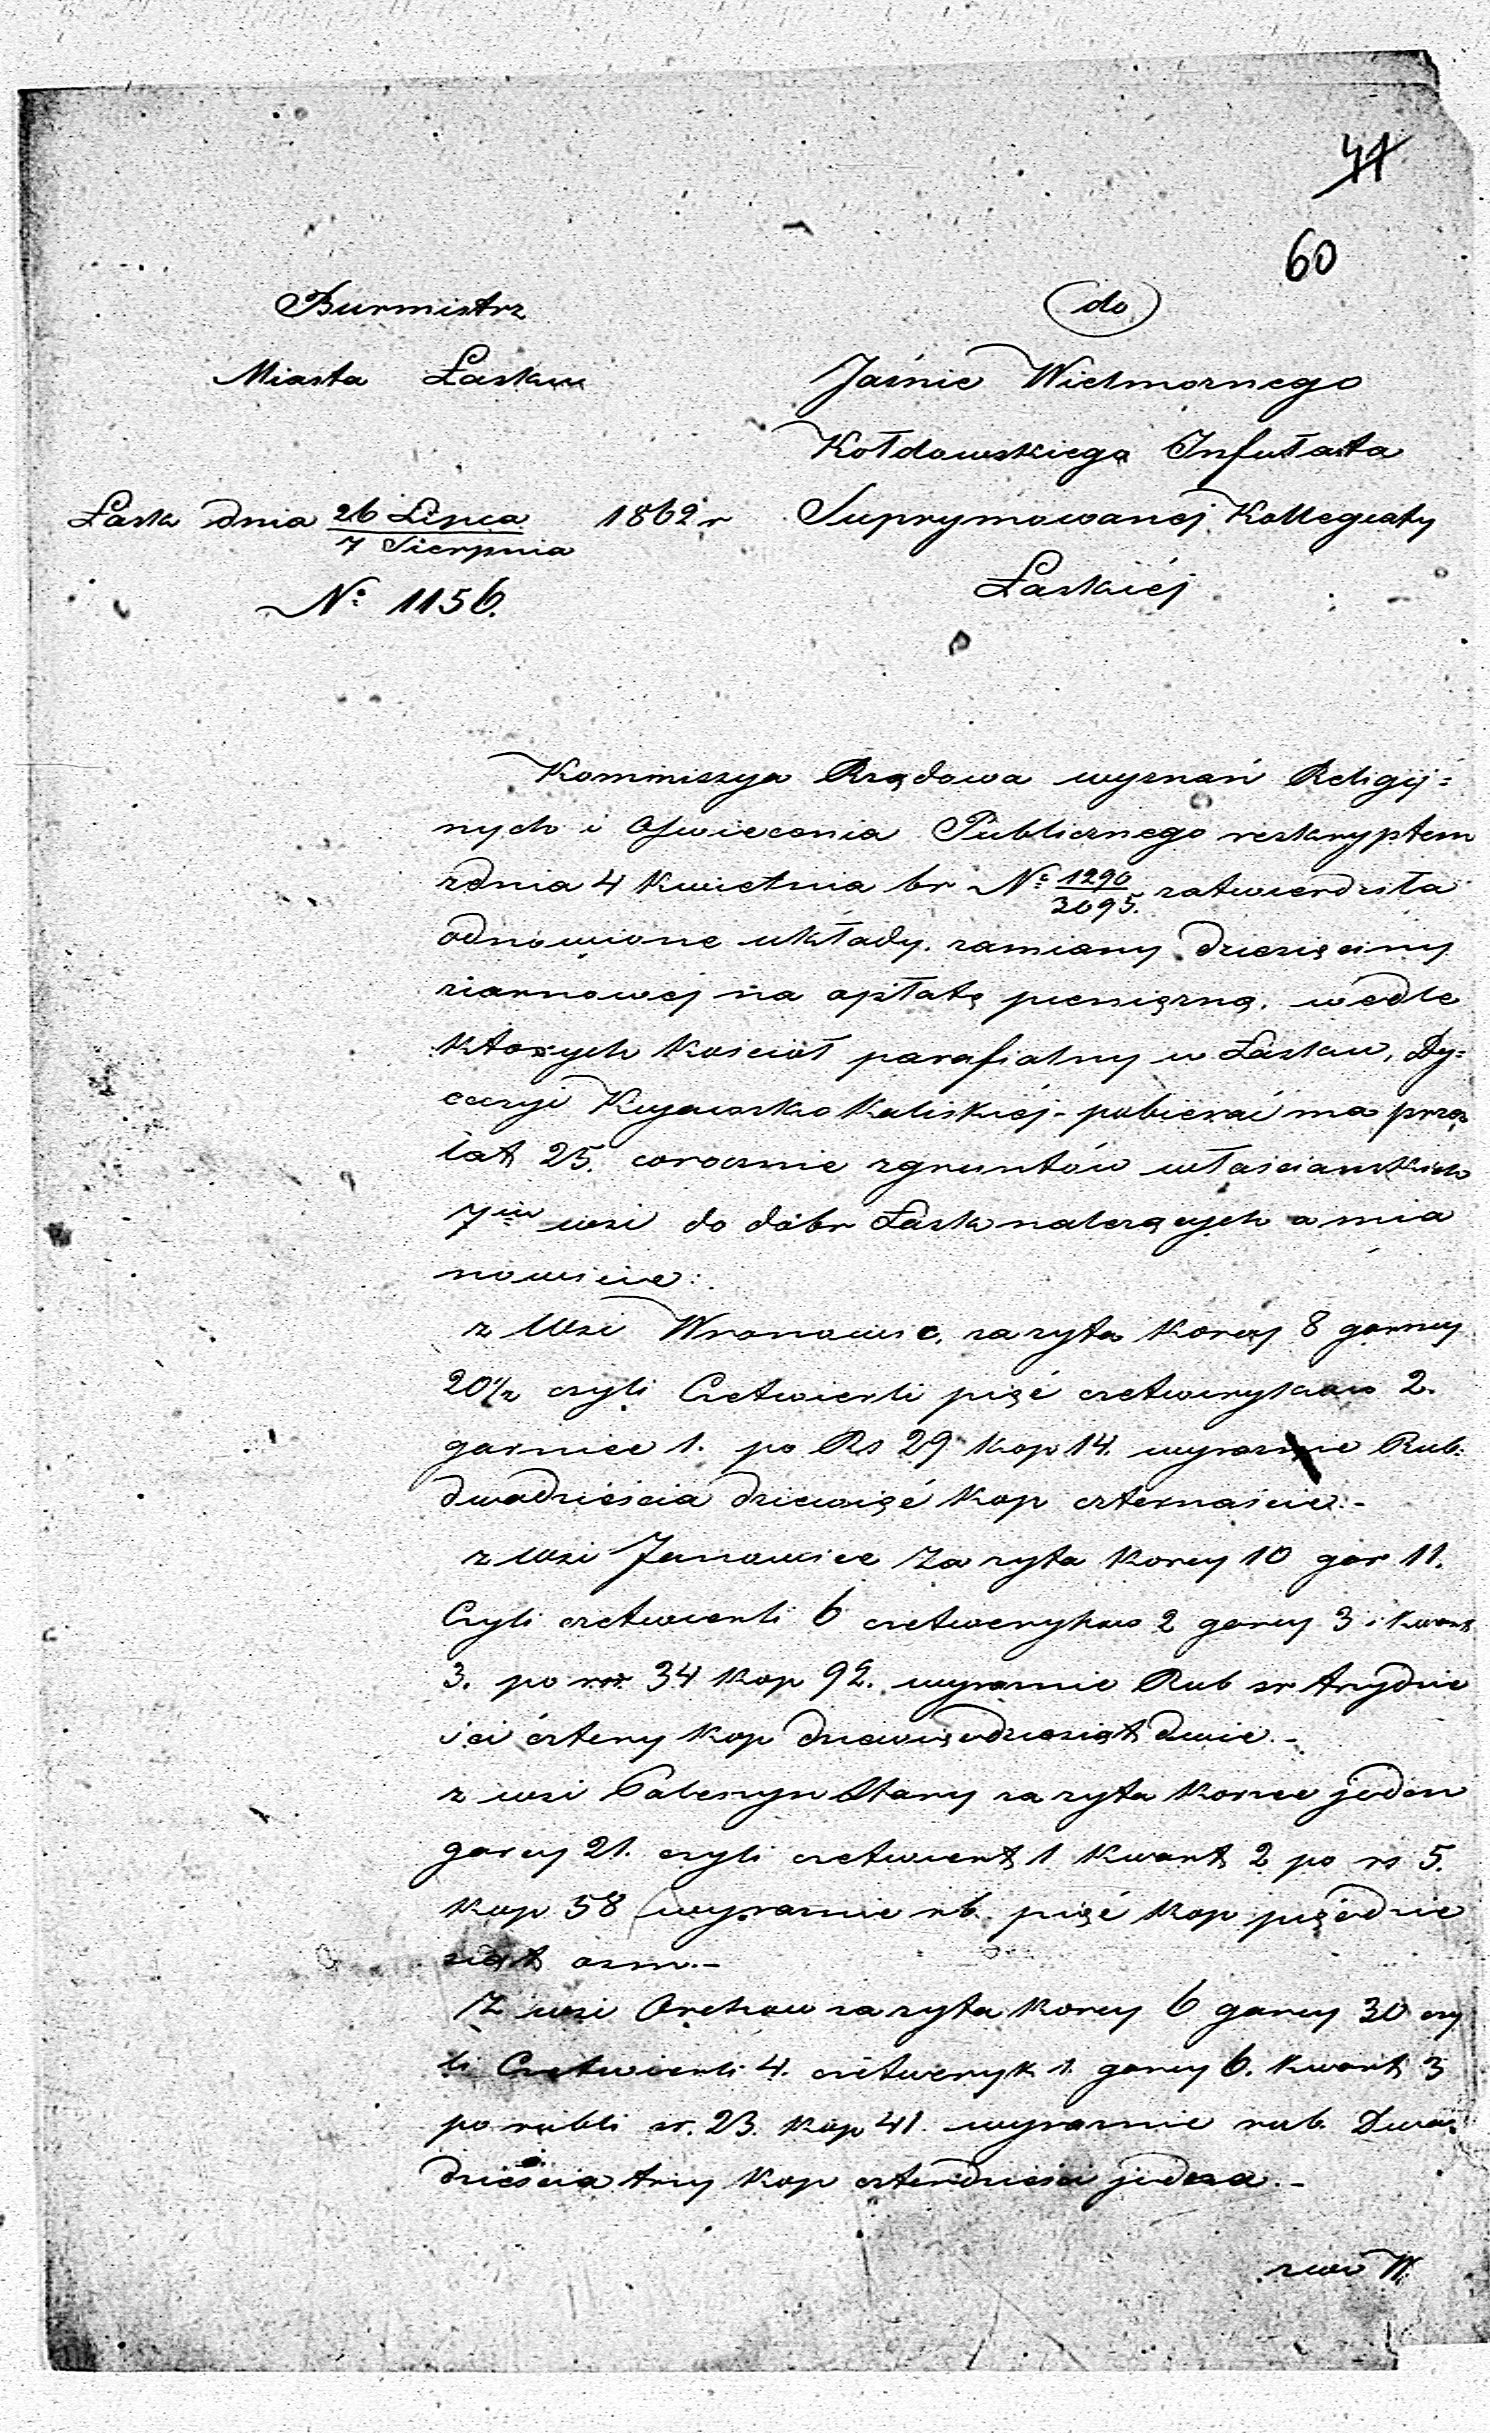 41
60
Burmistrz
Miasta Łasku
Łask dnia 26 Lipca / 7 Sierpnia 1862 r
№ 1156.
do
Jaśnie Wielmożnego
Kołdowskiego Infułata
Suprymowanej Kollegiaty
Łaskiéj
Kommissya Rządowa wyznań Religij=
nych i Oświecenia Publicznego reskryptem
zdnia 4 Kwietnia br № 1290/3095. zatwierdziła
odnowione układy. zamiany dziesięciny
ziarnowéj na opłatę pieniężną, wedle
których Kościoł parafialny w Łasku, Dy=
cezyi Kujawsko Kaliskiéj - pobierać ma przez
lat 25. corocznie zgruntów włościańskich
7miu wsi do dóbr Łask należących a mia
nowicie:
z Wsi Wronowic, za żyta korcy 8 garncy
20 1/2 czyli Czetwierti pięć czetwerykow 2.
garniec 1. po Rs 29 kop 14. wyraznie Rub:
dwadzieścia dziewięć Kop czternaście. -
z Wsi Janowice Za żyta Korcy 10 gar 11.
Czyli czetwierti 6 czetwerykow 2 garcy 3 i kwart
3. po rsr 34 Kop 92. wyraznie Rub sr trzydzie
ści cztery Kop dziewięćdziesiąt dwie. -
z wsi Stary za żyta Korzec jeden
garcy 21. czyli czetwiert 1 Kwart 2 po rs 5.
Kop 58 wyraznie rb. pięć Kop pięćdzie
siąt osm. -
Z wsi Orchow za żyta Korcy 6 garcy 30 czy
li Czetwierti 4. czetweryk 1. garcy 6. Kwart 3
po rubli sr. 23. Kop 41. wyraznie rub. Dwa=
dzieścia trzy Kop czterdzieści jedna. -